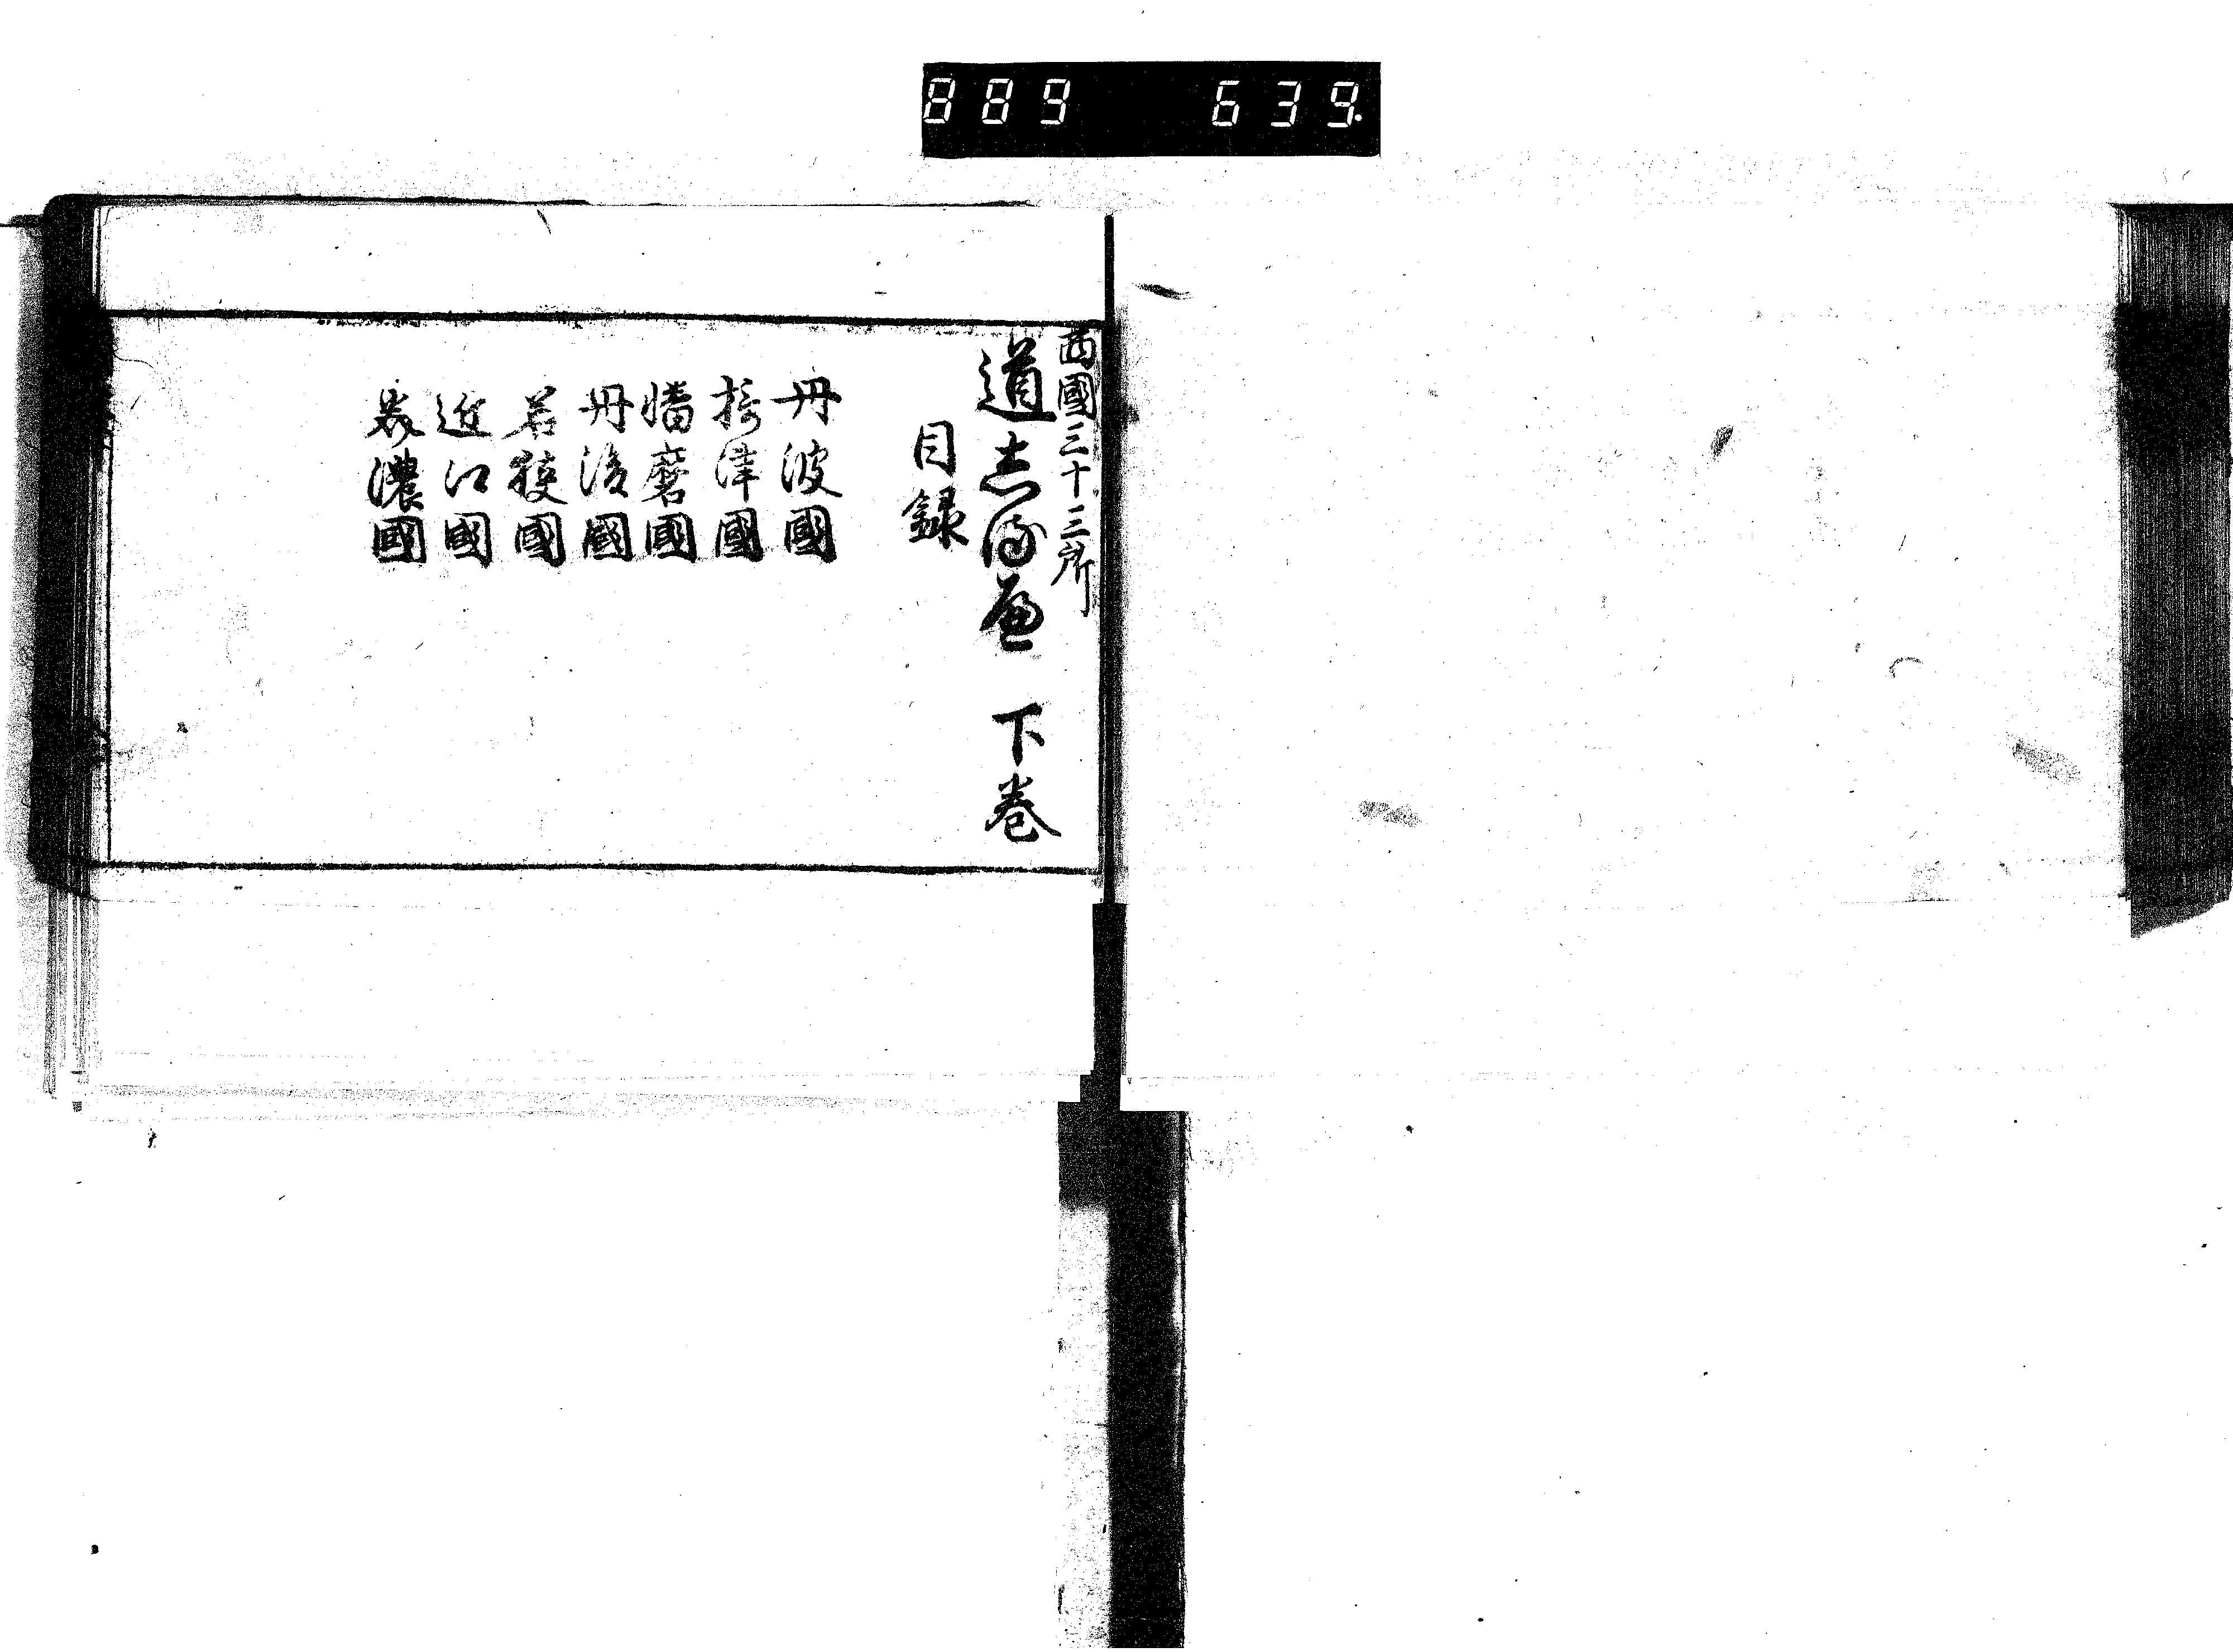 889 639.
西國三十三所
道志るべ 下巻
目録
丹波國
摂津國
播磨國
丹後國
若狭國
近江國
美濃國